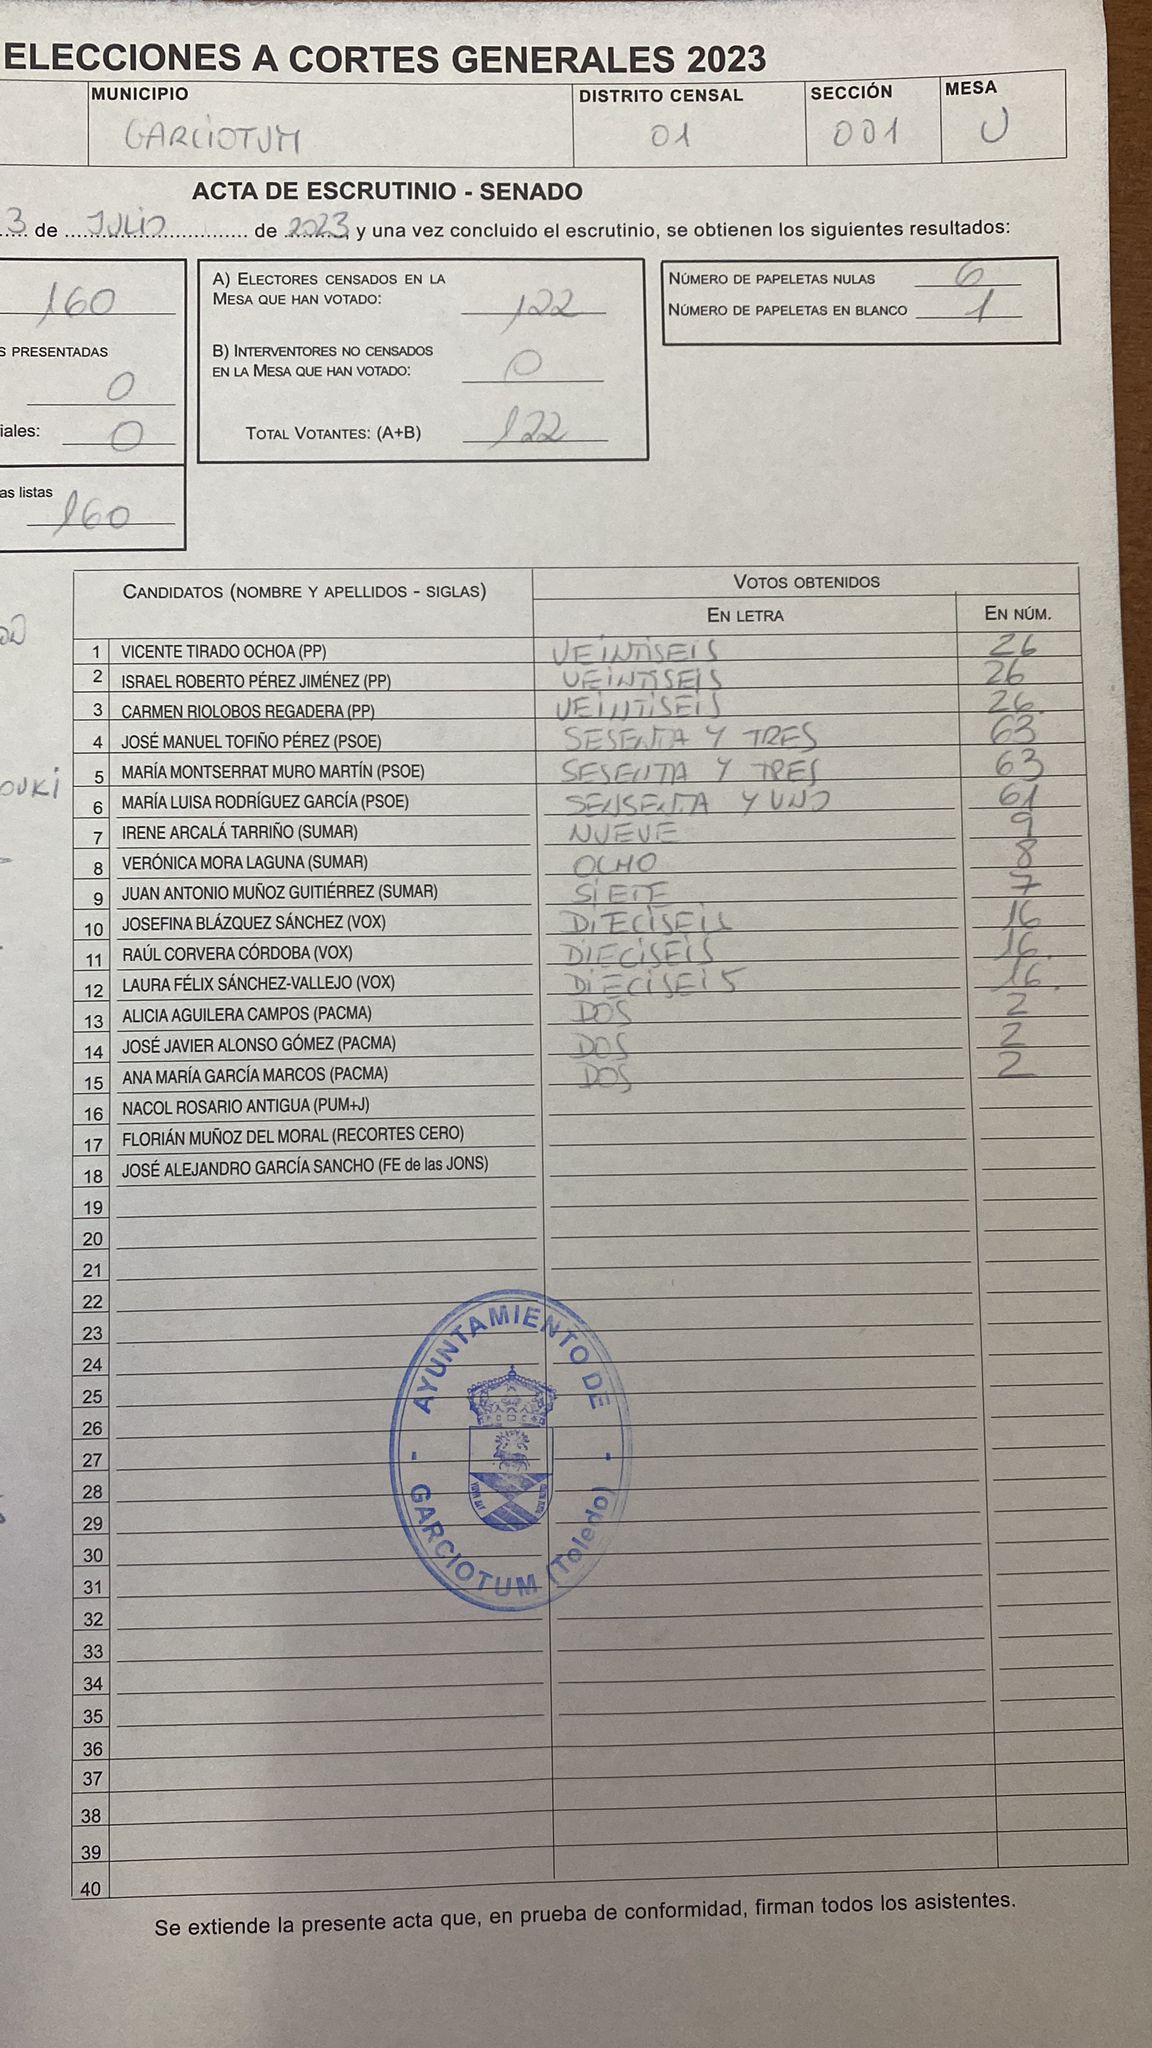 ELECCIONES A CORTES GENERALES 2023
MUNICIPIO
GARCIOTUM
DISTRITO CENSAL
01
SECCIÓN
001
MESA
U
ACTA DE ESCRUTINIO - SENADO
3 de JULIO de 2023, y una vez concluido el escrutinio, se obtienen los siguientes resultados:
160
S PRESENTADAS
0
iales: 0
as listas
160
A) ELECTORES CENSADOS EN LA
MESA QUE HAN VOTADO: 122
B) INTERVENTORES NO CENSADOS
EN LA MESA QUE HAN VOTADO: 0
TOTAL VOTANTES: (A+B) 122
NÚMERO DE PAPELETAS NULAS 6
NÚMERO DE PAPELETAS EN BLANCO 1
CANDIDATOS (NOMBRE Y APELLIDOS - SIGLAS)
VOTOS OBTENIDOS
EN LETRA
EN NÚM.
1 VICENTE TIRADO OCHOA (PP) VEINTISEIS 26
2 ISRAEL ROBERTO PÉREZ JIMÉNEZ (PP) VEINTISEIS 26
3 CARMEN RIOLOBOS REGADERA (PP) VEINTISEIS 26.
4 JOSÉ MANUEL TOFIÑO PÉREZ (PSOE) SESENTA Y TRES 63
5 MARÍA MONTSERRAT MURO MARTÍN (PSOE) SESENTA Y TRES 63
6 MARÍA LUISA RODRÍGUEZ GARCÍA (PSOE) SENSENTA Y UNO 61
7 IRENE ARCALÁ TARRIÑO (SUMAR) NUEVE 9
8 VERÓNICA MORA LAGUNA (SUMAR) OCHO 8
9 JUAN ANTONIO MUÑOZ GUITIÉRREZ (SUMAR) SIETE 7
10 JOSEFINA BLÁZQUEZ SÁNCHEZ (VOX) DIECISEIS 16
11 RAÚL CORVERA CÓRDOBA (VOX) DIECISEIS 16.
12 LAURA FÉLIX SÁNCHEZ-VALLEJO (VOX) DIECISEIS 16.
13 ALICIA AGUILERA CAMPOS (PACMA) DOS 2
14 JOSÉ JAVIER ALONSO GÓMEZ (PACMA) DOS 2
15 ANA MARÍA GARCÍA MARCOS (PACMA) DOS 2
16 NACOL ROSARIO ANTIGUA (PUM+J)
17 FLORIÁN MUÑOZ DEL MORAL (RECORTES CERO)
18 JOSÉ ALEJANDRO GARCÍA SANCHO (FE de las JONS)
19
20
21
22
23
24
25
26
27
28
29
30
31
32
33
34
35
36
37
38
39
40
AYUNTAMIENTO DE
- GARCIOTUM (Toledo) -
Se extiende la presente acta que, en prueba de conformidad, firman todos los asistentes.